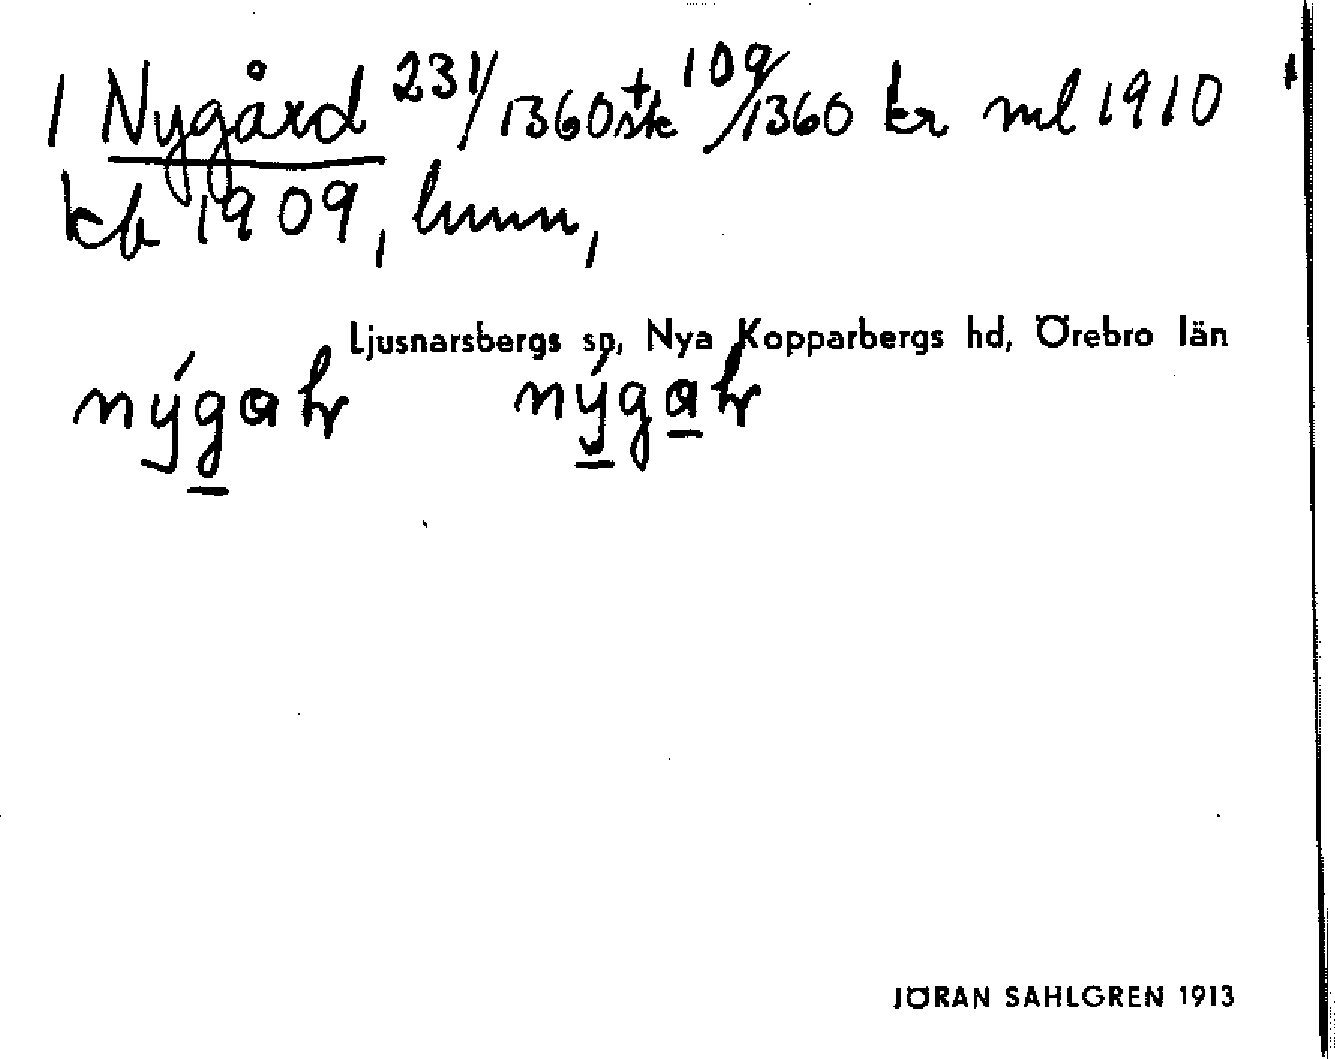 1 Nygård 231/1360 sk + 109/1360 kr ml 1910
kb 1909, lmm,
Ljusnarsbergs sp, Nya Kopparbergs hd, Örebro län
nýgaħr nýgaħr
JÖRAN SAHLGREN 1913